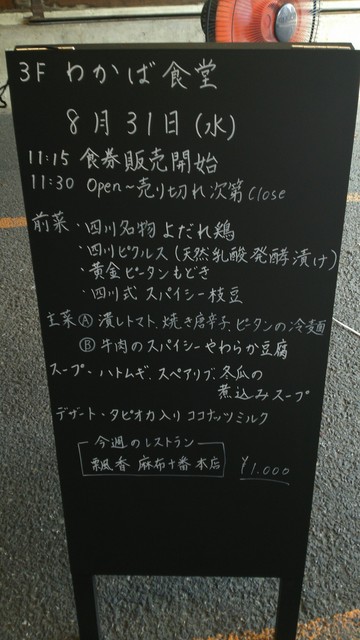 3F わかば食堂
8月31日(水)
11:15 食券販売開始
11:30 Open～売り切れ次第Close
前菜・四川名物よだれ鶏
・四川ピクルス(天然乳酸発酵漬け)
・黄金ピータンもどき
・四川式 スパイシー枝豆
主菜Ⓐ 潰しトマト、焼き唐辛子、ピータンの冷麺
Ⓑ 牛肉のスパイシーやわらか豆腐
スープ・ハトムギ、スペアリブ、冬瓜の
煮込みスープ
デザート・タピオカ入りココナッツミルク
今週のレストラン
飄香 麻布十番本店
¥1.000